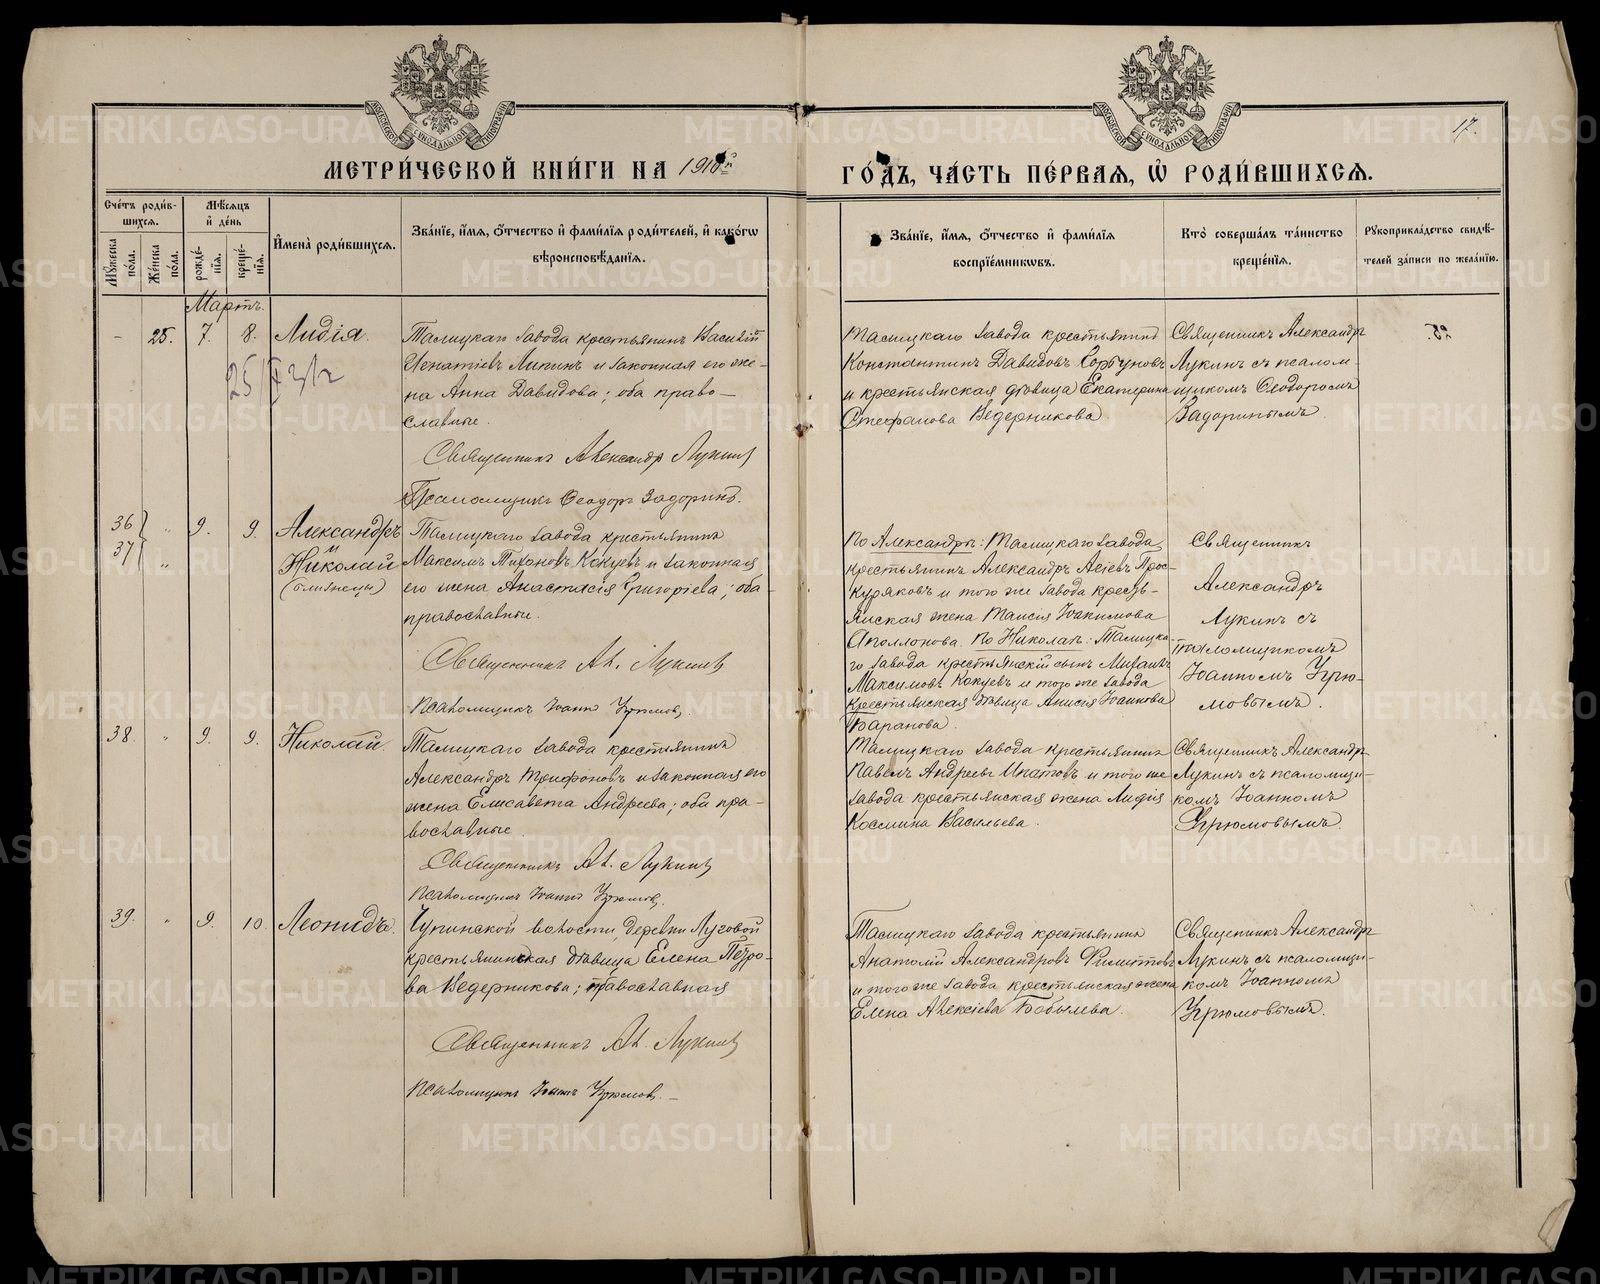 17.
МЕТРИ́ЧЕСКОЙ КНИ́ГИ НА 1910й ГО́ДЪ, ЧА́СТЬ ПЕ́РВАЯ, Ѡ҆ РОДИ́ВШИХСЯ.
Сче́тъ роди́в-
шихся.
Му́жеска по́ла.
Же́нска по́ла.
Мѣ́сяцъ
и҆ де́нь
рожде́-
нїѧ.
креще́-
нїѧ.
И҆мена̀ роди́вшихся.
Зва́нїе, и҆́мѧ, ѻ҆́тчество и҆ фами́лїѧ роди́телей, и҆ како́гѡ
вѣроисповѣ́данїѧ.
Зва́нїе, и҆́мѧ, ѻ҆́тчество и҆ фами́лїѧ
воспрїе́мникѡвъ.
Кто̀ соверша́лъ та́инство
креще́нїѧ.
Рꙋкоприкла́дство свидѣ́-
телей за́писи по жела́нїю.
Мартъ.
- 25. 7. 8. Лидія.
Талицкаго завода крестьянинъ Василій
Игнатіевъ Ликинъ и законная его же-
на Анна Давидова; оба право-
славные.
Священникъ Александр Лукинъ
Псаломщикъ Ѳеодоръ Задоринъ.
Талицкаго завода крестьянинъ
Константинъ Давидовъ Горбуновъ
и крестьянская дѣвица Екатерина
Стефанова Ведерникова
Священникъ Александръ
Лукинъ съ псалом-
щикомъ Ѳеодоромъ
Задоринымъ.
25.
36
37
9. 9. Александръ
Николай
(близнецы)
Талицкаго завода крестьянинъ
Максимъ Тихоновъ Кокуевъ и законная
его жена Анастасія Григоріева; оба
православные.
Священникъ Ал. Лукинъ
Псаломщикъ Іоаннъ Угрюмовъ.
По Александръ: Талицкаго завода
крестьянинъ Александръ Асіевъ Прос-
куряковъ и того же завода кресть-
янская жена Таисія Іоакимова
Аполлонова. По Николаѣ: Талицка-
го завода крестьянскій сынъ Михаилъ
Максимовъ Кокуевъ и того же завода
крестьянская дѣвица Анисія Іоаннова
Баранова.
Священникъ
Александръ
Лукинъ съ
псаломщикомъ
Іоанномъ Угрю-
мовымъ.
38. " 9. 9. Николай.
Талицкаго завода крестьянинъ
Александръ Трифоновъ и законная его
жена Елисавета Андреева; оба пра-
вославные.
Священникъ Ал. Лукинъ
Псаломщикъ Іоаннъ Угрюмовъ.
Талицкаго завода крестьянинъ
Павелъ Андреевъ Ипатовъ и того же
завода крестьянская жена Лидія
Косьмина Васильева.
Священникъ Александръ
Лукинъ съ псаломщи-
комъ Іоанномъ
Угрюмовымъ.
39. " 9. 10. Леонидъ.
Чупинской волости деревни Луговой
крестьянинская дѣвица Елена Петро-
ва Ведерникова; православная
Священникъ Ал. Лукинъ
Псаломщикъ Іоаннъ Угрюмовъ.
Талицкаго завода крестьянинъ
Анатолій Александровъ Филипповъ
и того же завода крестьянская жена
Елена Алексіева Бобылева.
Священникъ Александръ
Лукинъ съ псаломщи-
комъ Іоанномъ
Угрюмовымъ.
METRIKI.GASO-URAL.RU